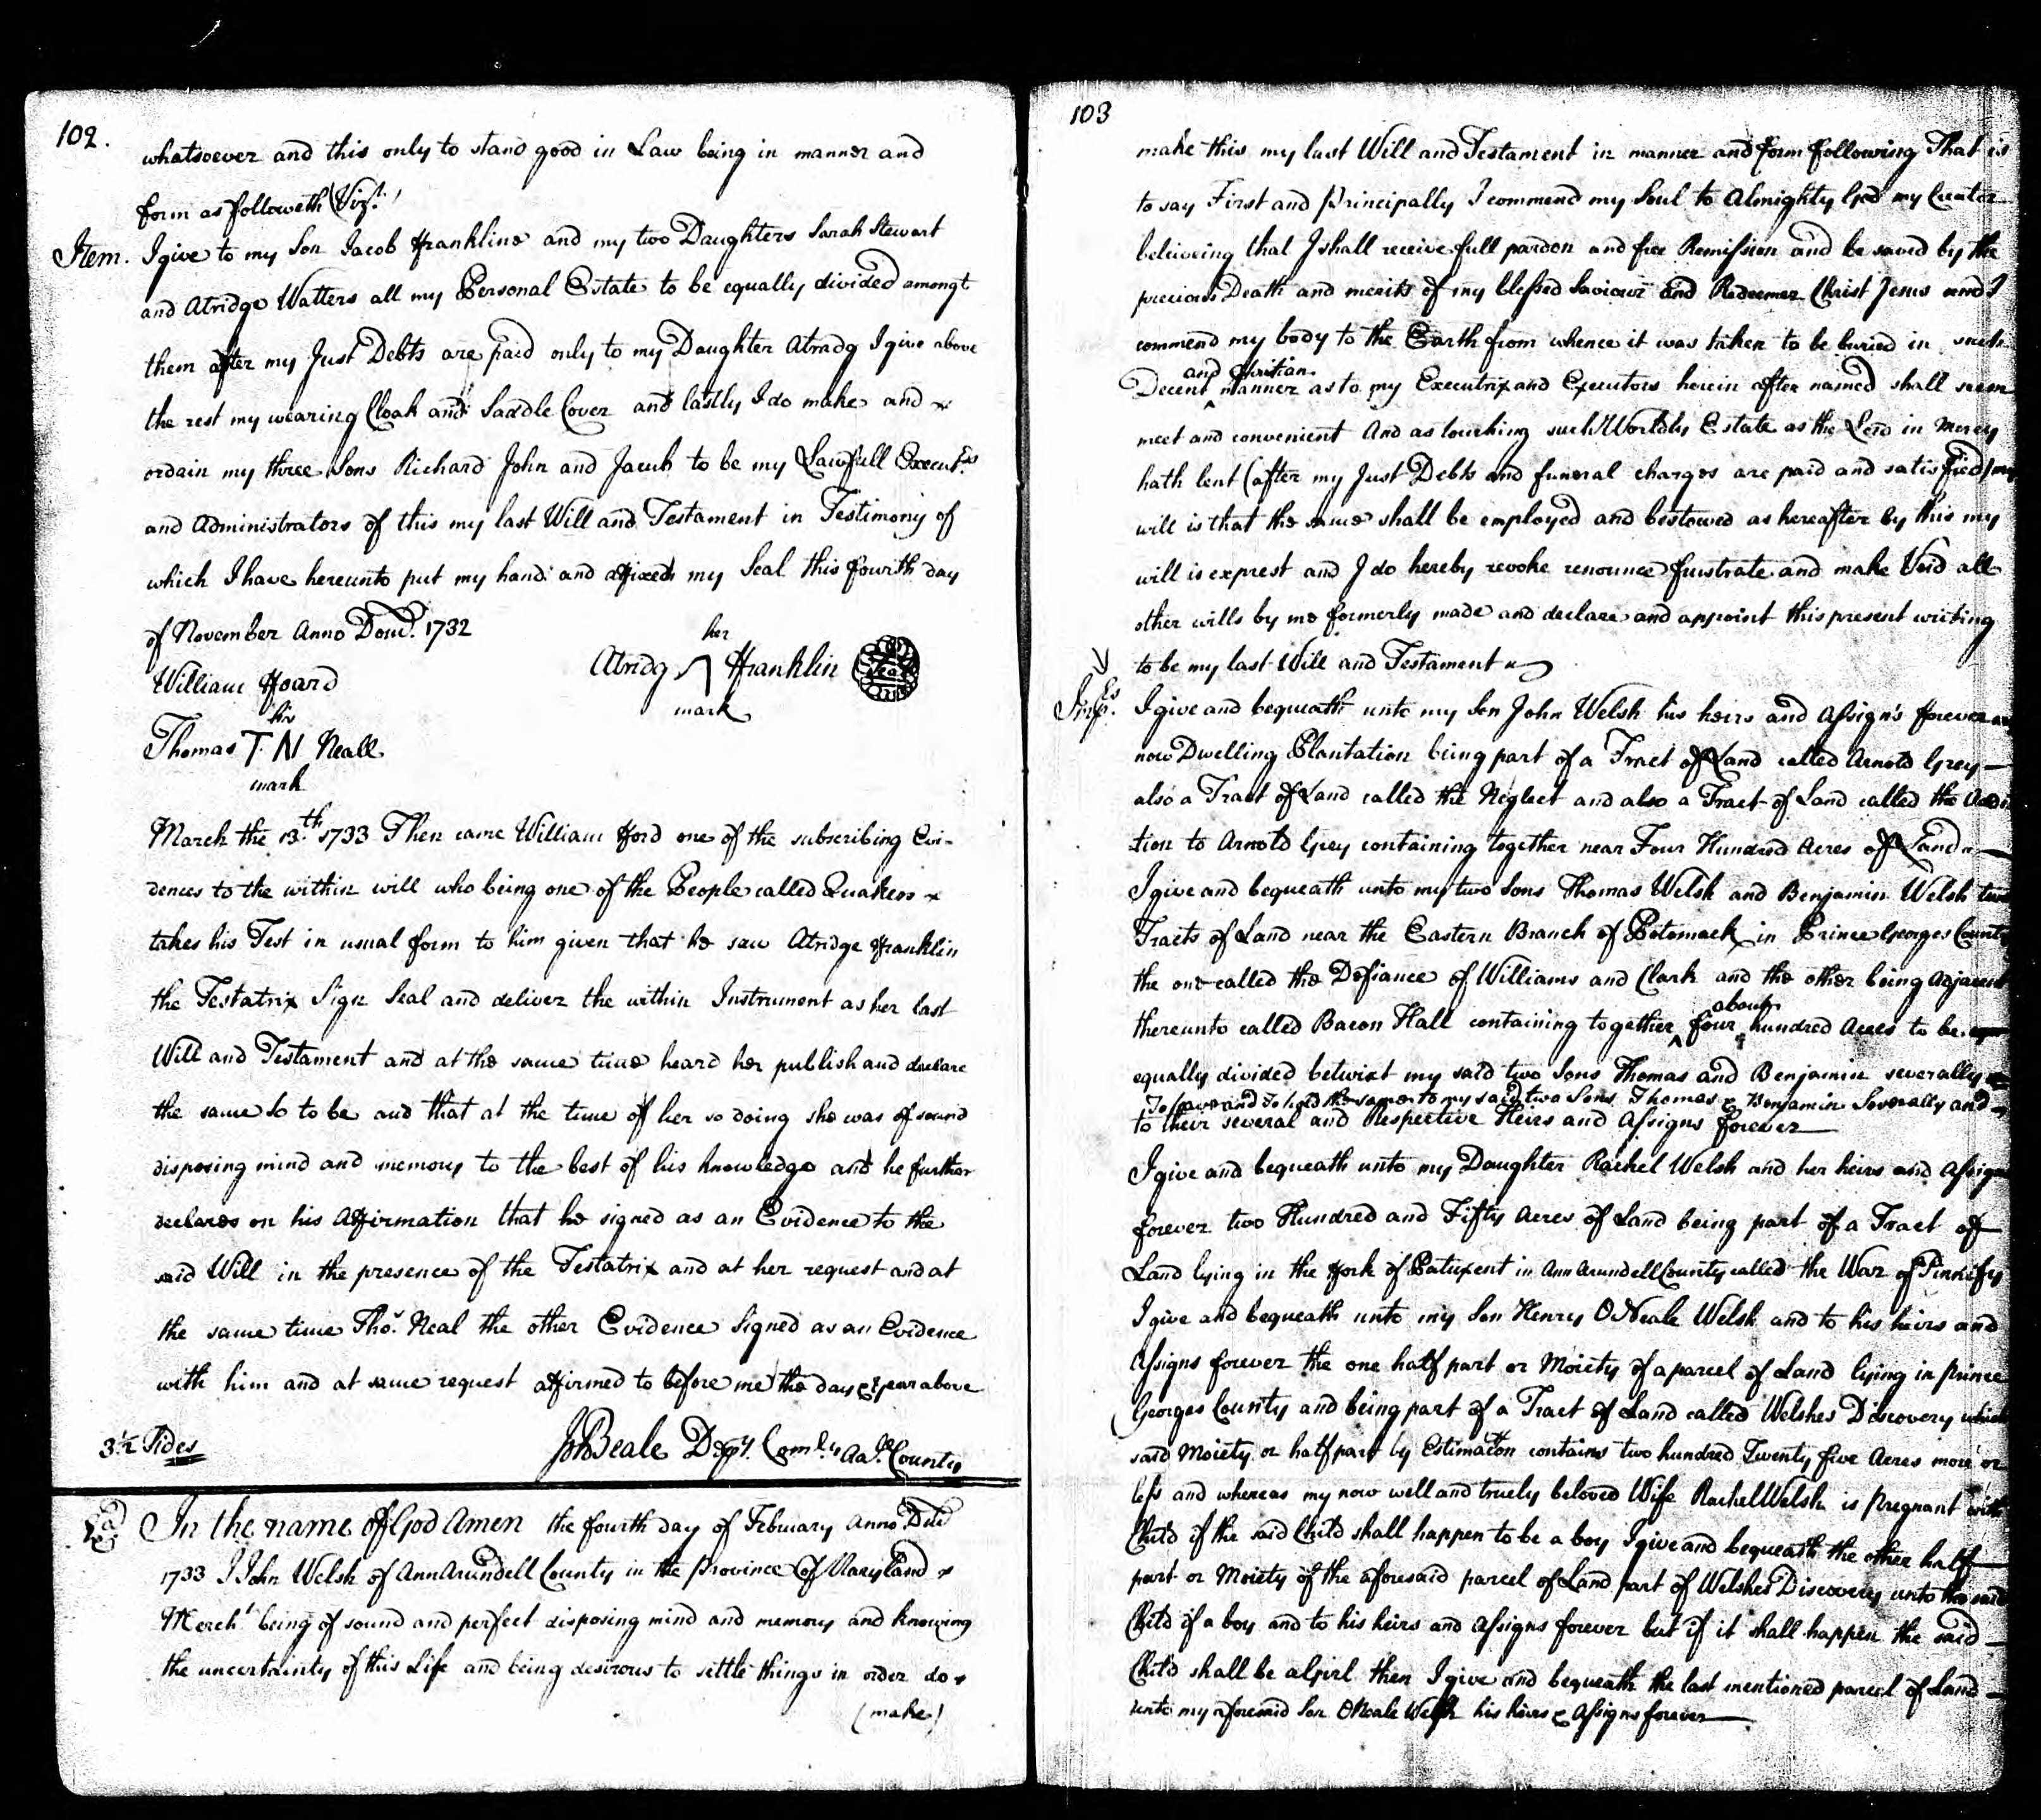 102.
whatsoever and this only to stand good in Law being in manner and
form as followeth (Vizt.)
Item. I give to my Son Jacob Franklins and my two Daughters Sarah Stewart
and Atridge Watters all my Personal Estate to be equally divided amongt
them after my Just Debts are paid only to my Daughter Atradg I give above
the rest my wearing Cloak and Saddle Cover and lastly I do make and
ordain my three Sons Richard John and Jacub to be my Lawfull Executrs
and Administrators of this my last Will and Testament in Testimony of
which I have hereunto put my hand and affixed my Seal this fowrth day
of November Anno Domd. 1732
her
William Hoard Atridg Franklin Seal
mark
his
Thomas T N Neall
mark
March the 13th. 1733 Then came William Ford one of the subscribing Evi-
dences to the within will who being one of the People called Quakers
takes his Test in usual form to him given that he saw Atridge Franklin
the Testatrix Sign Seal and deliver the within Instrument as her last
Will and Testament and at the same time heard her publish and declare
the same so to be and that at the time of her so doing she was of sound
disposing mind and memory to the best of his knowledge and he further
declares on his Affirmation that he signed as an Evidence to the
said Will in the presence of the Testatrix and at her request and at
the same time Thos. Neal the other Evidence Signed as an Evidence
with him and at same request affirmed to before me the day & year above
3½ Sides Jo Beale Depy. Comry Aa. County
In the name of God Amen the fourth day of February Anno Dni
1733 I John Welsh of Ann Arundell County in the Province of Maryland
Mercht. being of sound and perfect disposing mind and memory and knowing
the uncertainty of this Life and being desirous to settle things in order do
(make)
103
make this my last Will and Testament in manner and form following That is
to say First and Principally I commend my Soul to Almighty God my Creator
beleiveing that I shall receive full pardon and free Remission and be saved by the
precious Death and merits of my blessed Saviour and Redeemer Christ Jesus and I
commend my body to the Earth from whence it was taken to be buried in such
and Christian
Decent ^ manner as to my Executrix and Executors herein after named shall seem
meet and convenient And as touching such Worldly Estate as the Lord in Mercy
hath lent (after my Just Debts and funeral charges are paid and satisfied) my
will is that the same shall be employed and bestowed as hereafter by this my
will is exprest and I do hereby revoke renounce frustrate and make Void all
other wills by me formerly made and declare and appoint this present writing
to be my last Will and Testament
Imps. I give and bequeath unto my Son John Welsh his heirs and Assign's forever
now Dwelling Plantation being part of a Tract of Land called Arnold Grey
also a Tract of Land called the Neglect and also a Tract of Land called the Addi
tion to Arnold Grey containing together near Four Hundred Acres of Land
I give and bequeath unto my two Sons Thomas Welsh and Benjamin Welsh two
Tracts of Land near the Eastern Branch of Potomack in Prince Georges County
the one called the Defiance of Williams and Clark and the other being Adjacent
about
thereunto called Bacon Hall containing together ^ four hundred Acres to be
equally divided betwixt my said two Sons Thomas and Benjamin severally
To have and to hold the same to my said two Sons Thomas & Benjamin Severally and
to their several and Respective Heirs and Assigns forever
I give and bequeath unto my Daughter Rachel Welsh and her heirs and Assigns
forever two Hundred and Fifty Acres of Land being part of a Tract of
Land lying in the Fork of Patuxent in Ann Arundell County called the War of
I give and bequeath unto my Son Henry O Neale Welsh and to his heirs and
Assigns forever the one half part or Moiety of a parcel of Land lying in Prince
Georges County and being part of a Tract of Land called Welshes Discovery which
said Moiety or half part by Estimation contains two hundred Twenty five Acres more or
less and whereas my now well and truely beloved Wife Rachel Welsh is Pregnant with
Child if the said Child shall happen to be a boy I give and bequeath the other half
part or Moiety of the aforesaid parcel of Land part of Welshes Discovery unto the said
Child if a boy and to his heirs and Assigns forever but if it shall happen the said
Child shall be a Girl then I give and bequeath the last mentioned parcel of Land
unto my aforesaid Son ONeale Welsh his heirs & Assigns forever